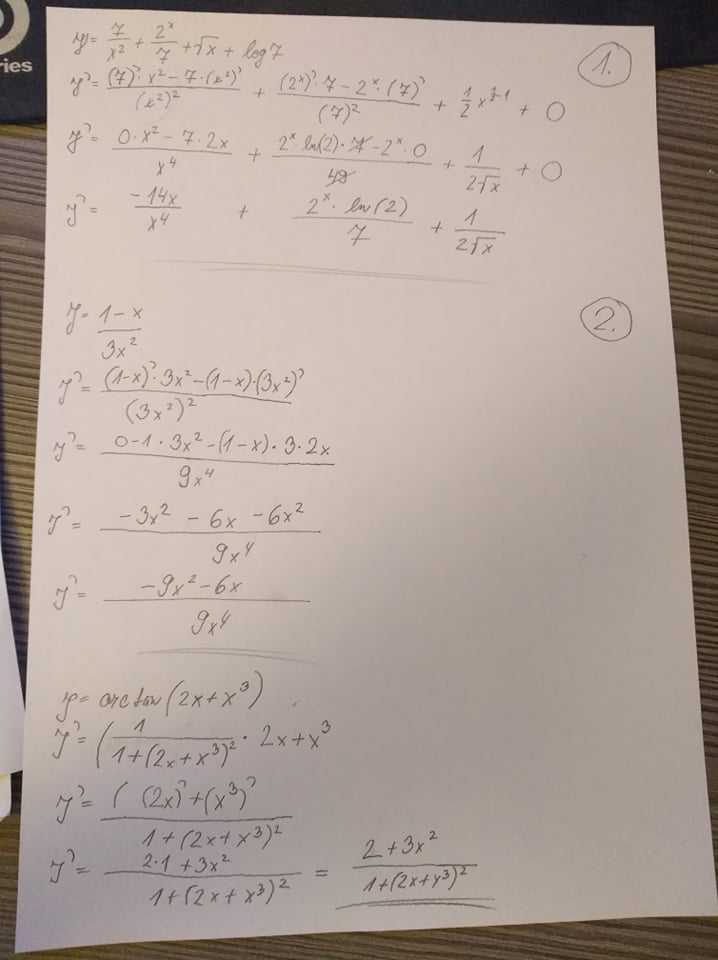 ries
y = 7/x² + 2ˣ/7 + √x + log 7
1.
y' = ((7)'·x² − 7·(x²)')/(x²)² + ((2ˣ)'·7 − 2ˣ·(7)')/(7)² + 1/2 x^(1/2−1) + 0
y' = (0·x² − 7·2x)/x⁴ + (2ˣ·ln(2)·7 − 2ˣ·0)/49 + 1/(2√x) + 0
y' = −14x/x⁴ + (2ˣ·ln(2))/7 + 1/(2√x)
y = (1−x)/(3x²)
2.
y' = ((1−x)'·3x² − (1−x)·(3x²)')/(3x²)²
y' = (0−1·3x² − (1−x)·3·2x)/9x⁴
y' = (−3x² − 6x − 6x²)/9x⁴
y' = (−9x² − 6x)/9x⁴
y = arctan (2x + x³)
y' = (1/(1+(2x+x³)²·2x+x³
y' = ((2x)'+(x³)'/1+(2x+x³)²
y' = (2·1+3x²)/(1+(2x+x³)²) = (2+3x²)/(1+(2x+x³)²)